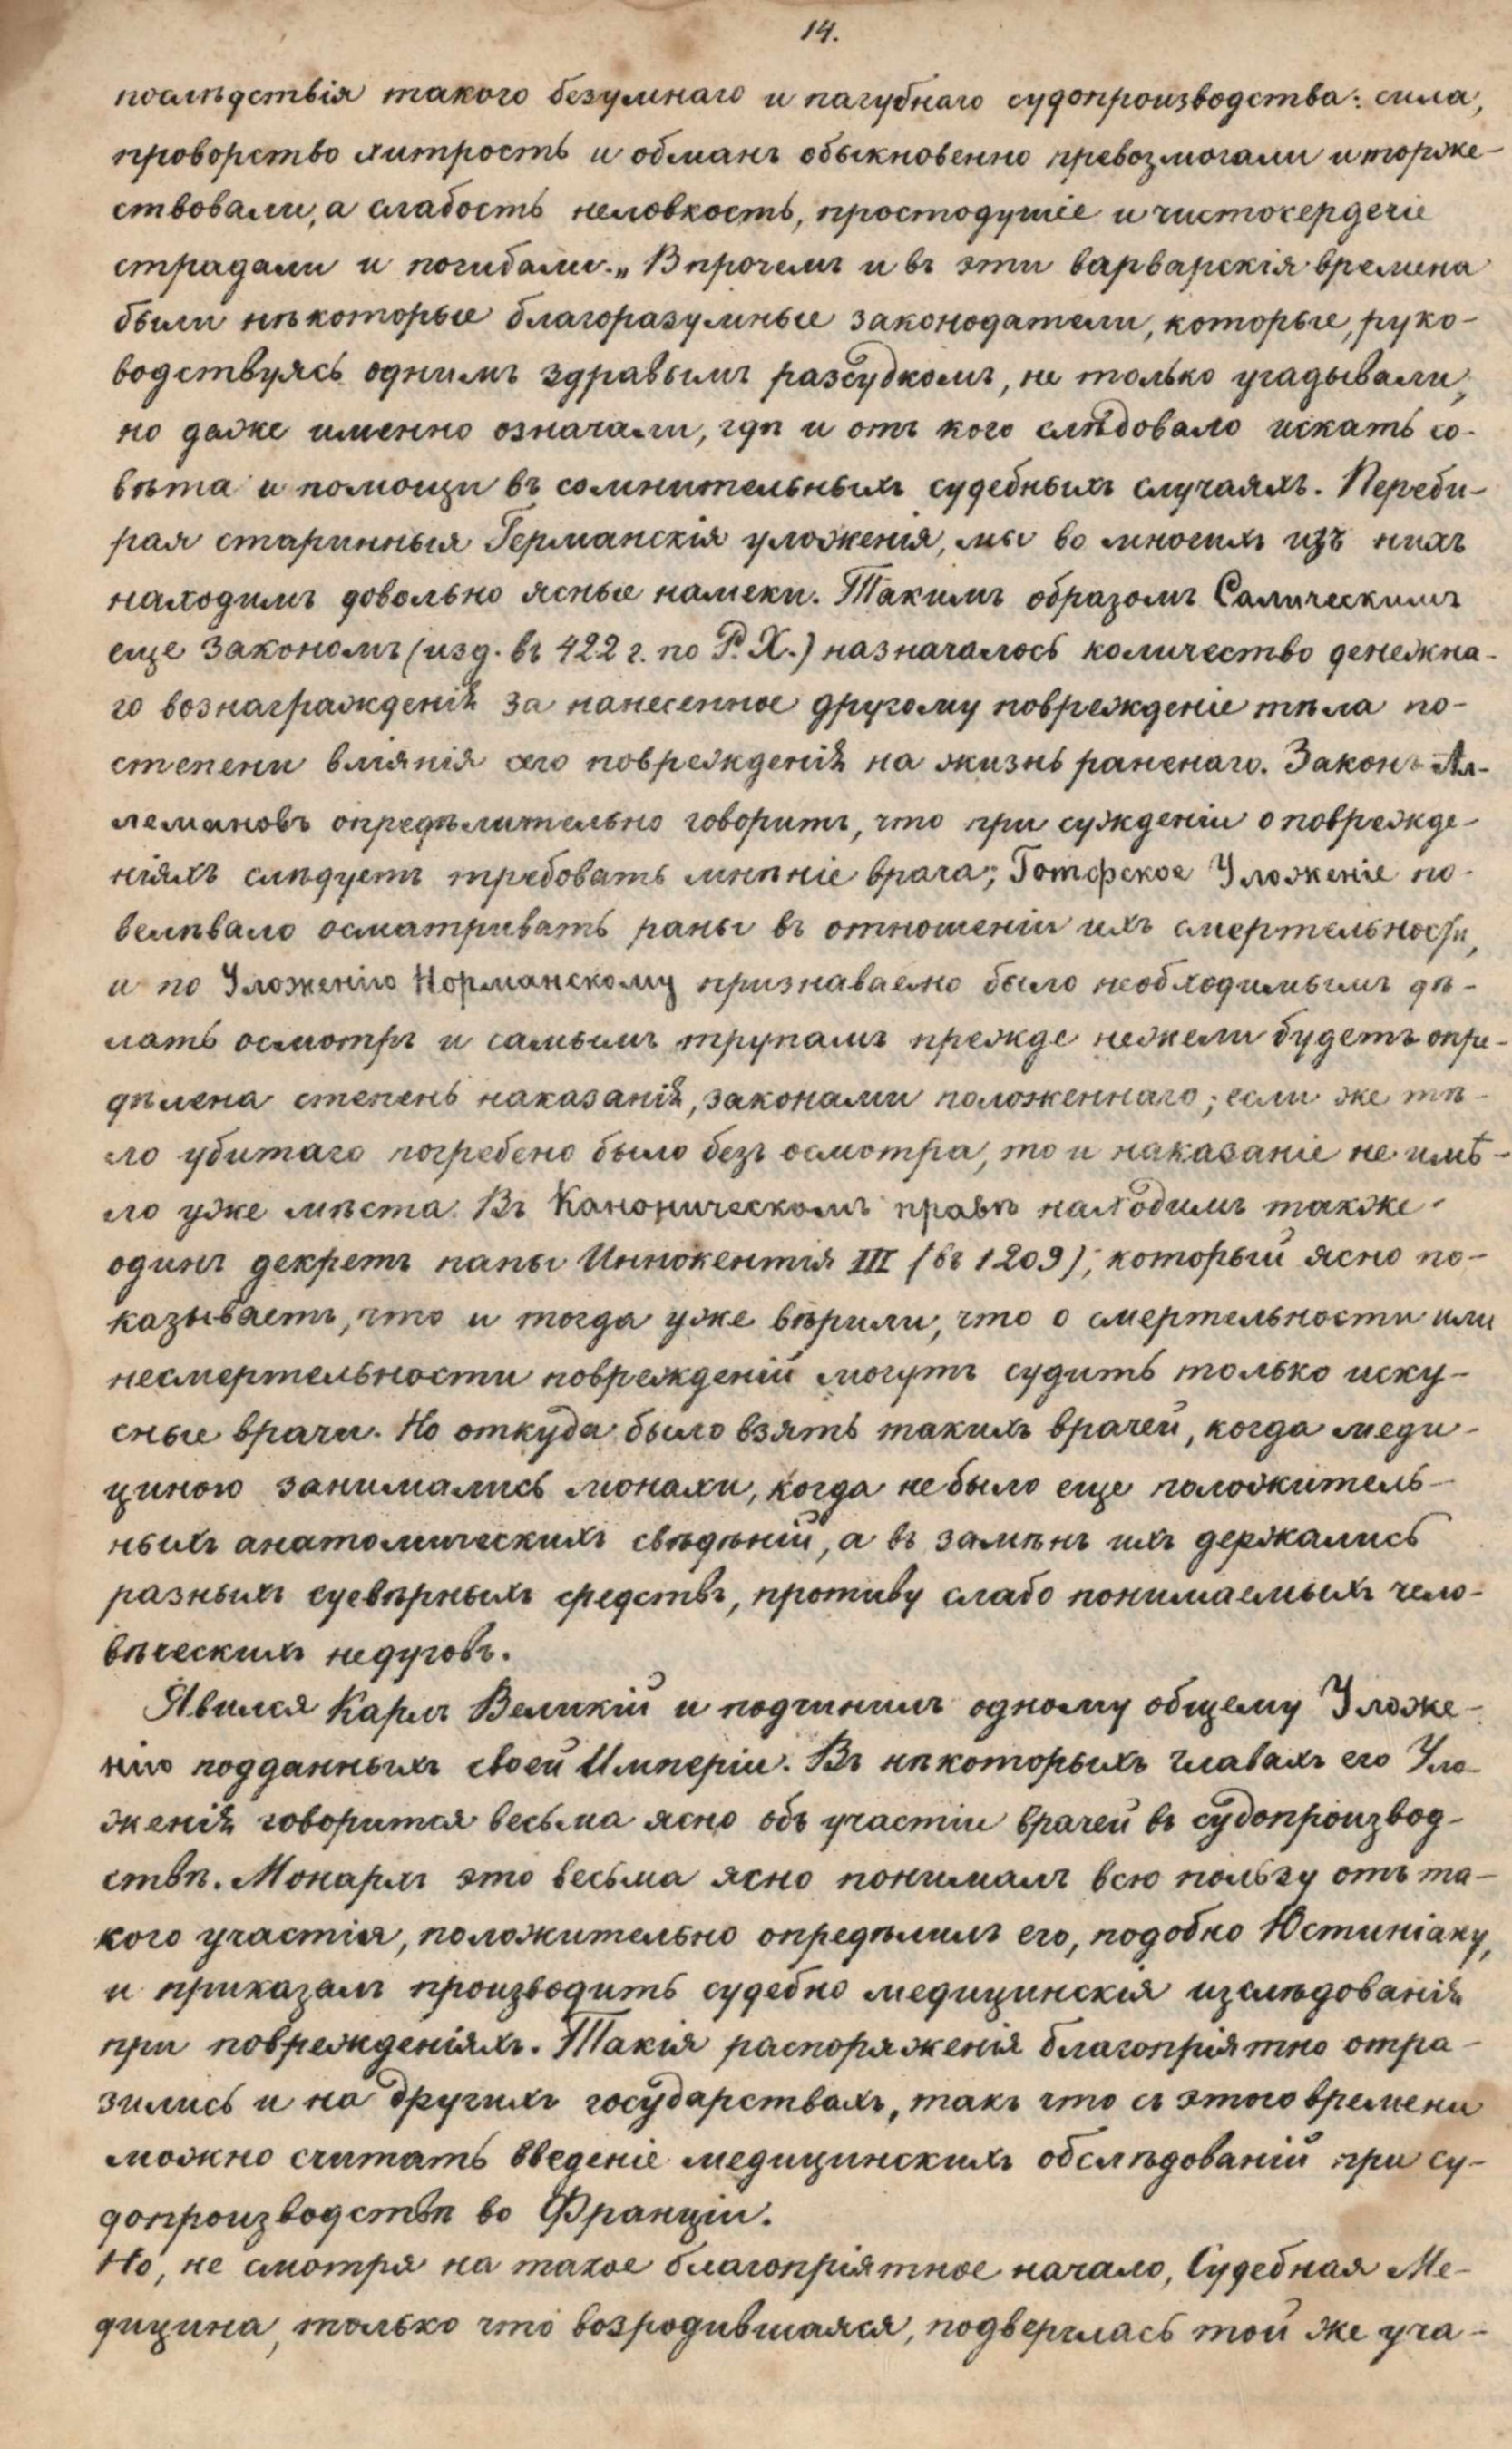 14.
послѣдствія такого безумнаго и пагубнаго судопроизводства: сила,
проворство хитрость и обманъ обыкновенно превозмогали и торже-
ствовали, а слабость неловкость, простодушіе и чистосердечіе
страдали и погибали.„ Впрочемъ и въ эти варварскія времена
были нѣкоторые благоразумные законодатели, которые, руко-
водствуясь однимъ здравымъ разсудкомъ, не только угадывали,
но даже именно означали, гдѣ и отъ кого слѣдовало искать со-
вѣта и помощи въ сомнительныхъ судебныхъ случаяхъ. Переби-
рая старинныя Германскія уложенія, мы во многихъ изъ нихъ
находимъ довольно ясные намеки. Такимъ образомъ Салическимъ
еще Закономъ (изд. въ 422 г. по Р. Х.) назначалось количество денежна-
го вознагражденія за нанесенное другому поврежденіе тѣла по-
степени вліянія его поврежденія на жизнь раненаго. Законъ Ал-
лемановъ опредѣлительно говоритъ, что при сужденіи о поврежде-
ніяхъ слѣдуетъ требовать мнѣніе врача; Готфское Уложеніе по-
велѣвало осматривать раны въ отношеніи ихъ смертельности,
и по Уложенію Норманскому признаваемо было необходимымъ дѣ-
лать осмотръ и самымъ трупамъ прежде нежели будетъ опре-
дѣлена степень наказанія, законами положеннаго; если же тѣ-
ло убитаго погребено было безъ осмотра, то и наказаніе не имѣ-
ло уже мѣста. Въ Каноническомъ правѣ находимъ также
одинъ декретъ папы Иннокентія III (въ 1209), который ясно по-
казываетъ, что и тогда уже вѣрили, что о смертельности или
несмертельности поврежденій могутъ судить только иску-
сные врачи. Но откуда было взять такихъ врачей, когда меди-
циною занимались монахи, когда не было еще положитель-
ныхъ анатомическихъ свѣдѣній, а въ замѣнъ ихъ держались
разныхъ суевѣрныхъ средствъ, противу слабо понимаемыхъ чело-
вѣческихъ недуговъ.
Явился Карлъ Великій и подчинилъ одному общему Уложе-
нію подданныхъ своей Имперіи. Въ нѣкоторыхъ главахъ его Уло-
женія говорится весьма ясно объ участіи врачей въ судопроизвод-
ствѣ. Монархъ это весьма ясно понималъ всю пользу отъ та-
кого участія, положительно опредѣлилъ его, подобно Юстиніану,
и приказалъ производить судебно медицинскія изслѣдованія
при поврежденіяхъ. Такія распоряженія благопріятно отра-
зились и на другихъ государствахъ, такъ что съ этого времени
можно считать введеніе медицинскихъ обслѣдованій при су-
допроизводствѣ во Франціи.
Но, не смотря на такое благопріятное начало, Судебная Ме-
дицина, только что возродившаяся, подверглась той же уча-